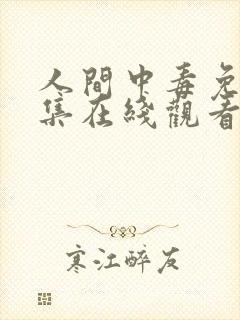 人間中毒免
集在綫觀看
寒江醉友